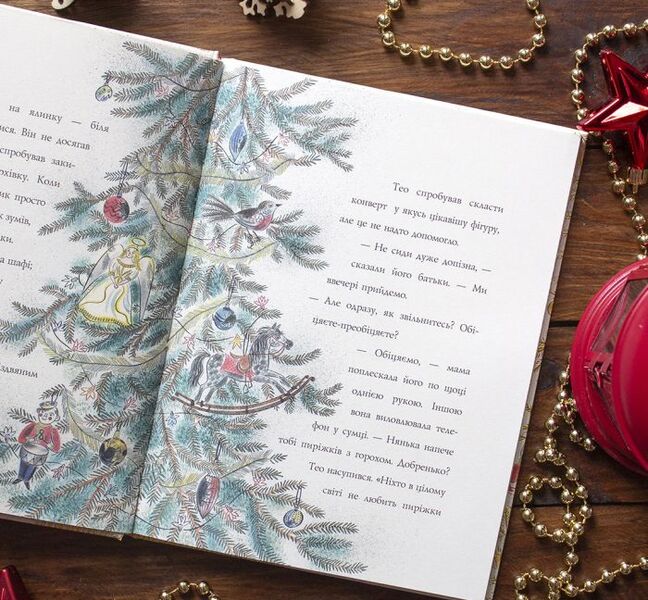 на ялинку — біля
ися. Він не досягав
спробував заки-
рхівку. Коли
ик просто
зумів,
ки.
а шафі;
у
здвяним
Тео спробував скласти
конверт у якусь цікавішу фігуру,
але це не надто допомогло.
— Не сиди дуже допізна, —
сказали його батьки. — Ми
ввечері прийдемо.
— Але одразу, як звільнитесь? Обі-
цяєте-преобіцяєте?
— Обіцяємо, — мама
поплескала його по щоці
однією рукою. Іншою
вона виловлювала теле-
фон у сумці. — Нянька напече
тобі пиріжків з горохом. Добренько?
Тео насупився. «Ніхто в цілому
світі не любить пиріжки